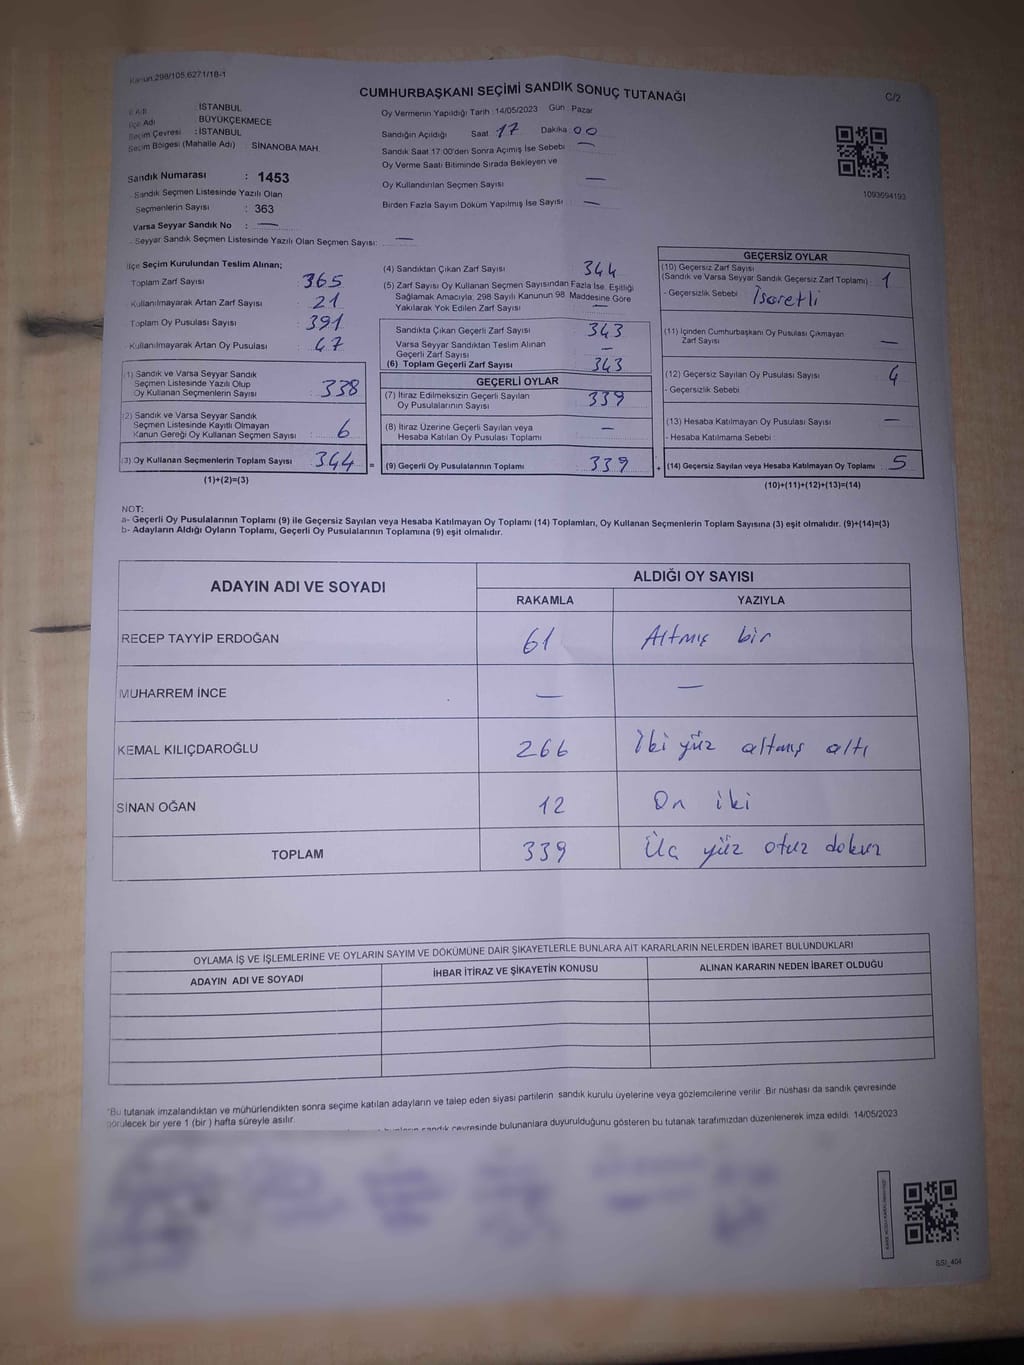 Kanun.298/105,6271/18-1
CUMHURBAŞKANI SEÇİMİ SANDIK SONUÇ TUTANAĞI
C/2
İl Adı : İSTANBUL
İlçe Adı : BÜYÜKÇEKMECE
Seçim Çevresi : İSTANBUL
Seçim Bölgesi (Mahalle Adı) : SİNANOBA MAH.
Sandık Numarası : 1453
Sandık Seçmen Listesinde Yazılı Olan
Seçmenlerin Sayısı : 363
Varsa Seyyar Sandık No : —
- Seyyar Sandık Seçmen Listesinde Yazılı Olan Seçmen Sayısı: —
Oy Vermenin Yapıldığı Tarih : 14/05/2023 Gün : Pazar
Sandığın Açıldığı Saat : 17 Dakika : 00
Sandık Saat 17:00'den Sonra Açımış İse Sebebi : —
Oy Verme Saati Bitiminde Sırada Bekleyen ve
Oy Kullandırılan Seçmen Sayısı : —
Birden Fazla Sayım Döküm Yapılmış İse Sayısı : —
1093694193
İlçe Seçim Kurulundan Teslim Alınan;
Toplam Zarf Sayısı : 365
Kullanılmayarak Artan Zarf Sayısı : 21
Toplam Oy Pusulası Sayısı : 391
Kullanılmayarak Artan Oy Pusulası : 47
(1) Sandık ve Varsa Seyyar Sandık
Seçmen Listesinde Yazılı Olup
Oy Kullanan Seçmenlerin Sayısı : 338
(2) Sandık ve Varsa Seyyar Sandık
Seçmen Listesinde Kayıtlı Olmayan
Kanun Gereği Oy Kullanan Seçmen Sayısı : 6
(3) Oy Kullanan Seçmenlerin Toplam Sayısı : 344
(1)+(2)=(3)
(4) Sandıktan Çıkan Zarf Sayısı : 344
(5) Zarf Sayısı Oy Kullanan Seçmen Sayısından Fazla İse, Eşitliği
Sağlamak Amacıyla; 298 Sayılı Kanunun 98 Maddesine Göre
Yakılarak Yok Edilen Zarf Sayısı : —
Sandıkta Çıkan Geçerli Zarf Sayısı : 343
Varsa Seyyar Sandıktan Teslim Alınan
Geçerli Zarf Sayısı : —
(6) Toplam Geçerli Zarf Sayısı : 343
GEÇERLİ OYLAR
(7) İtiraz Edilmeksizin Geçerli Sayılan
Oy Pusulalarının Sayısı : 339
(8) İtiraz Üzerine Geçerli Sayılan veya
Hesaba Katılan Oy Pusulası Toplamı : —
= (9) Geçerli Oy Pusulalarının Toplamı : 339
GEÇERSİZ OYLAR
(10) Geçersiz Zarf Sayısı
(Sandık ve Varsa Seyyar Sandık Geçersiz Zarf Toplamı) : 1
- Geçersizlik Sebebi : İşaretli
(11) İçinden Cumhurbaşkanı Oy Pusulası Çıkmayan
Zarf Sayısı : —
(12) Geçersiz Sayılan Oy Pusulası Sayısı : 4
- Geçersizlik Sebebi :
(13) Hesaba Katılmayan Oy Pusulası Sayısı : —
- Hesaba Katılmama Sebebi :
+ (14) Geçersiz Sayılan veya Hesaba Katılmayan Oy Toplamı : 5
(10)+(11)+(12)+(13)=(14)
NOT:
a- Geçerli Oy Pusulalarının Toplamı (9) ile Geçersiz Sayılan veya Hesaba Katılmayan Oy Toplamı (14) Toplamları, Oy Kullanan Seçmenlerin Toplam Sayısına (3) eşit olmalıdır. (9)+(14)=(3)
b- Adayların Aldığı Oyların Toplamı, Geçerli Oy Pusulalarının Toplamına (9) eşit olmalıdır.
ADAYIN ADI VE SOYADI ALDIĞI OY SAYISI
RAKAMLA YAZIYLA
RECEP TAYYİP ERDOĞAN 61 Altmış bir
MUHARREM İNCE — —
KEMAL KILIÇDAROĞLU 266 İki yüz altmış altı
SİNAN OĞAN 12 On iki
TOPLAM 339 Üç yüz otuz dokuz
OYLAMA İŞ VE İŞLEMLERİNE VE OYLARIN SAYIM VE DÖKÜMÜNE DAİR ŞİKAYETLERLE BUNLARA AİT KARARLARIN NELERDEN İBARET BULUNDUKLARI
ADAYIN ADI VE SOYADI İHBAR İTİRAZ VE ŞİKAYETİN KONUSU ALINAN KARARIN NEDEN İBARET OLDUĞU
*Bu tutanak imzalandıktan ve mühürlendikten sonra seçime katılan adayların ve talep eden siyasi partilerin sandık kurulu üyelerine veya gözlemcilerine verilir. Bir nüshası da sandık çevresinde
görülecek bir yere 1 (bir ) hafta süreyle asılır.
sandık çevresinde bulunanlara duyurulduğunu gösteren bu tutanak tarafımızdan düzenlenerek imza edildi. 14/05/2023
SSI_404